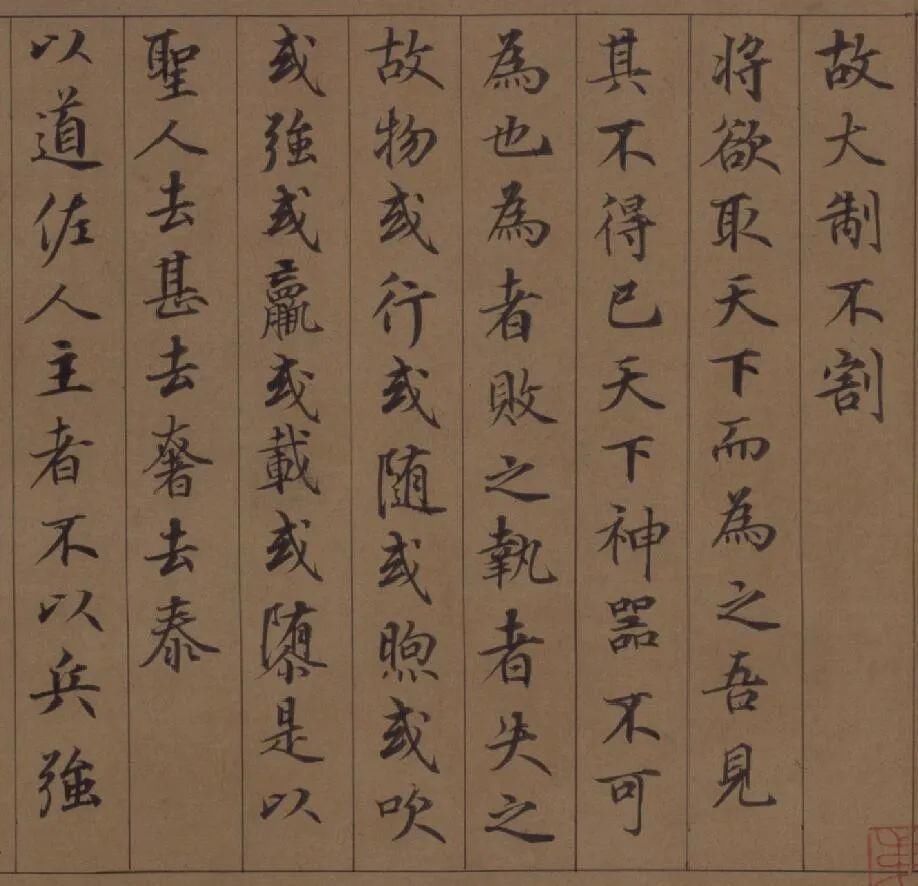 故大制不割
将欲取天下而為之吾見
其不得已天下神器不可
為也為者敗之執者失之
故物或行或随或煦或吹
或強或羸或載或隳是以
聖人去甚去奢去泰
以道佐人主者不以兵強